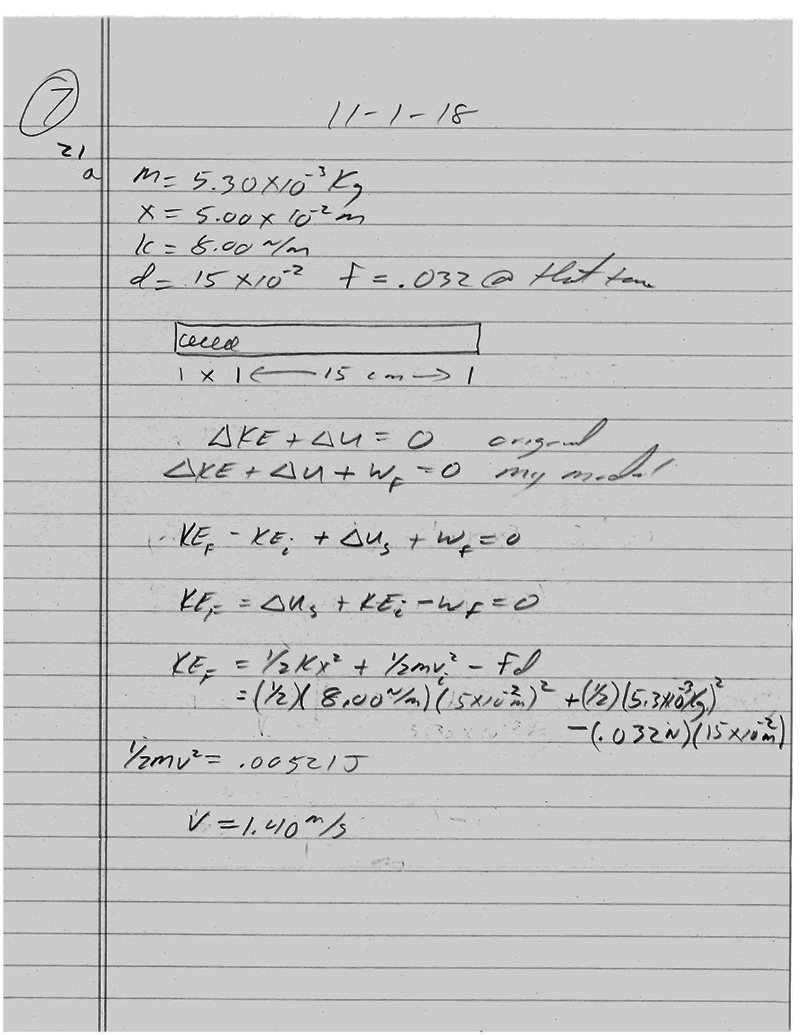 7
11-1-18
21
a
m = 5.30×10⁻³ Kg
x = 5.00 × 10⁻² m
k = 8.00 N/m
d = 15 ×10⁻² f = .032 @ that time
ceeee
| x | ← 15 cm → |
ΔKE + Δu = 0 original
ΔKE + Δu + W_F = 0 my model
KE_F - KE_i + Δu_s + w_f = 0
KE_F = Δu_s + KE_i - w_F = 0
KE_F = ½Kx² + ½mv_i² - Fd
= (½)(8.00 N/m)(5×10⁻² m)² + (½)(5.3×10⁻³Kg)²
-(.032N)(15×10⁻² m)
½mv² = .00521J
V = 1.40 m/s